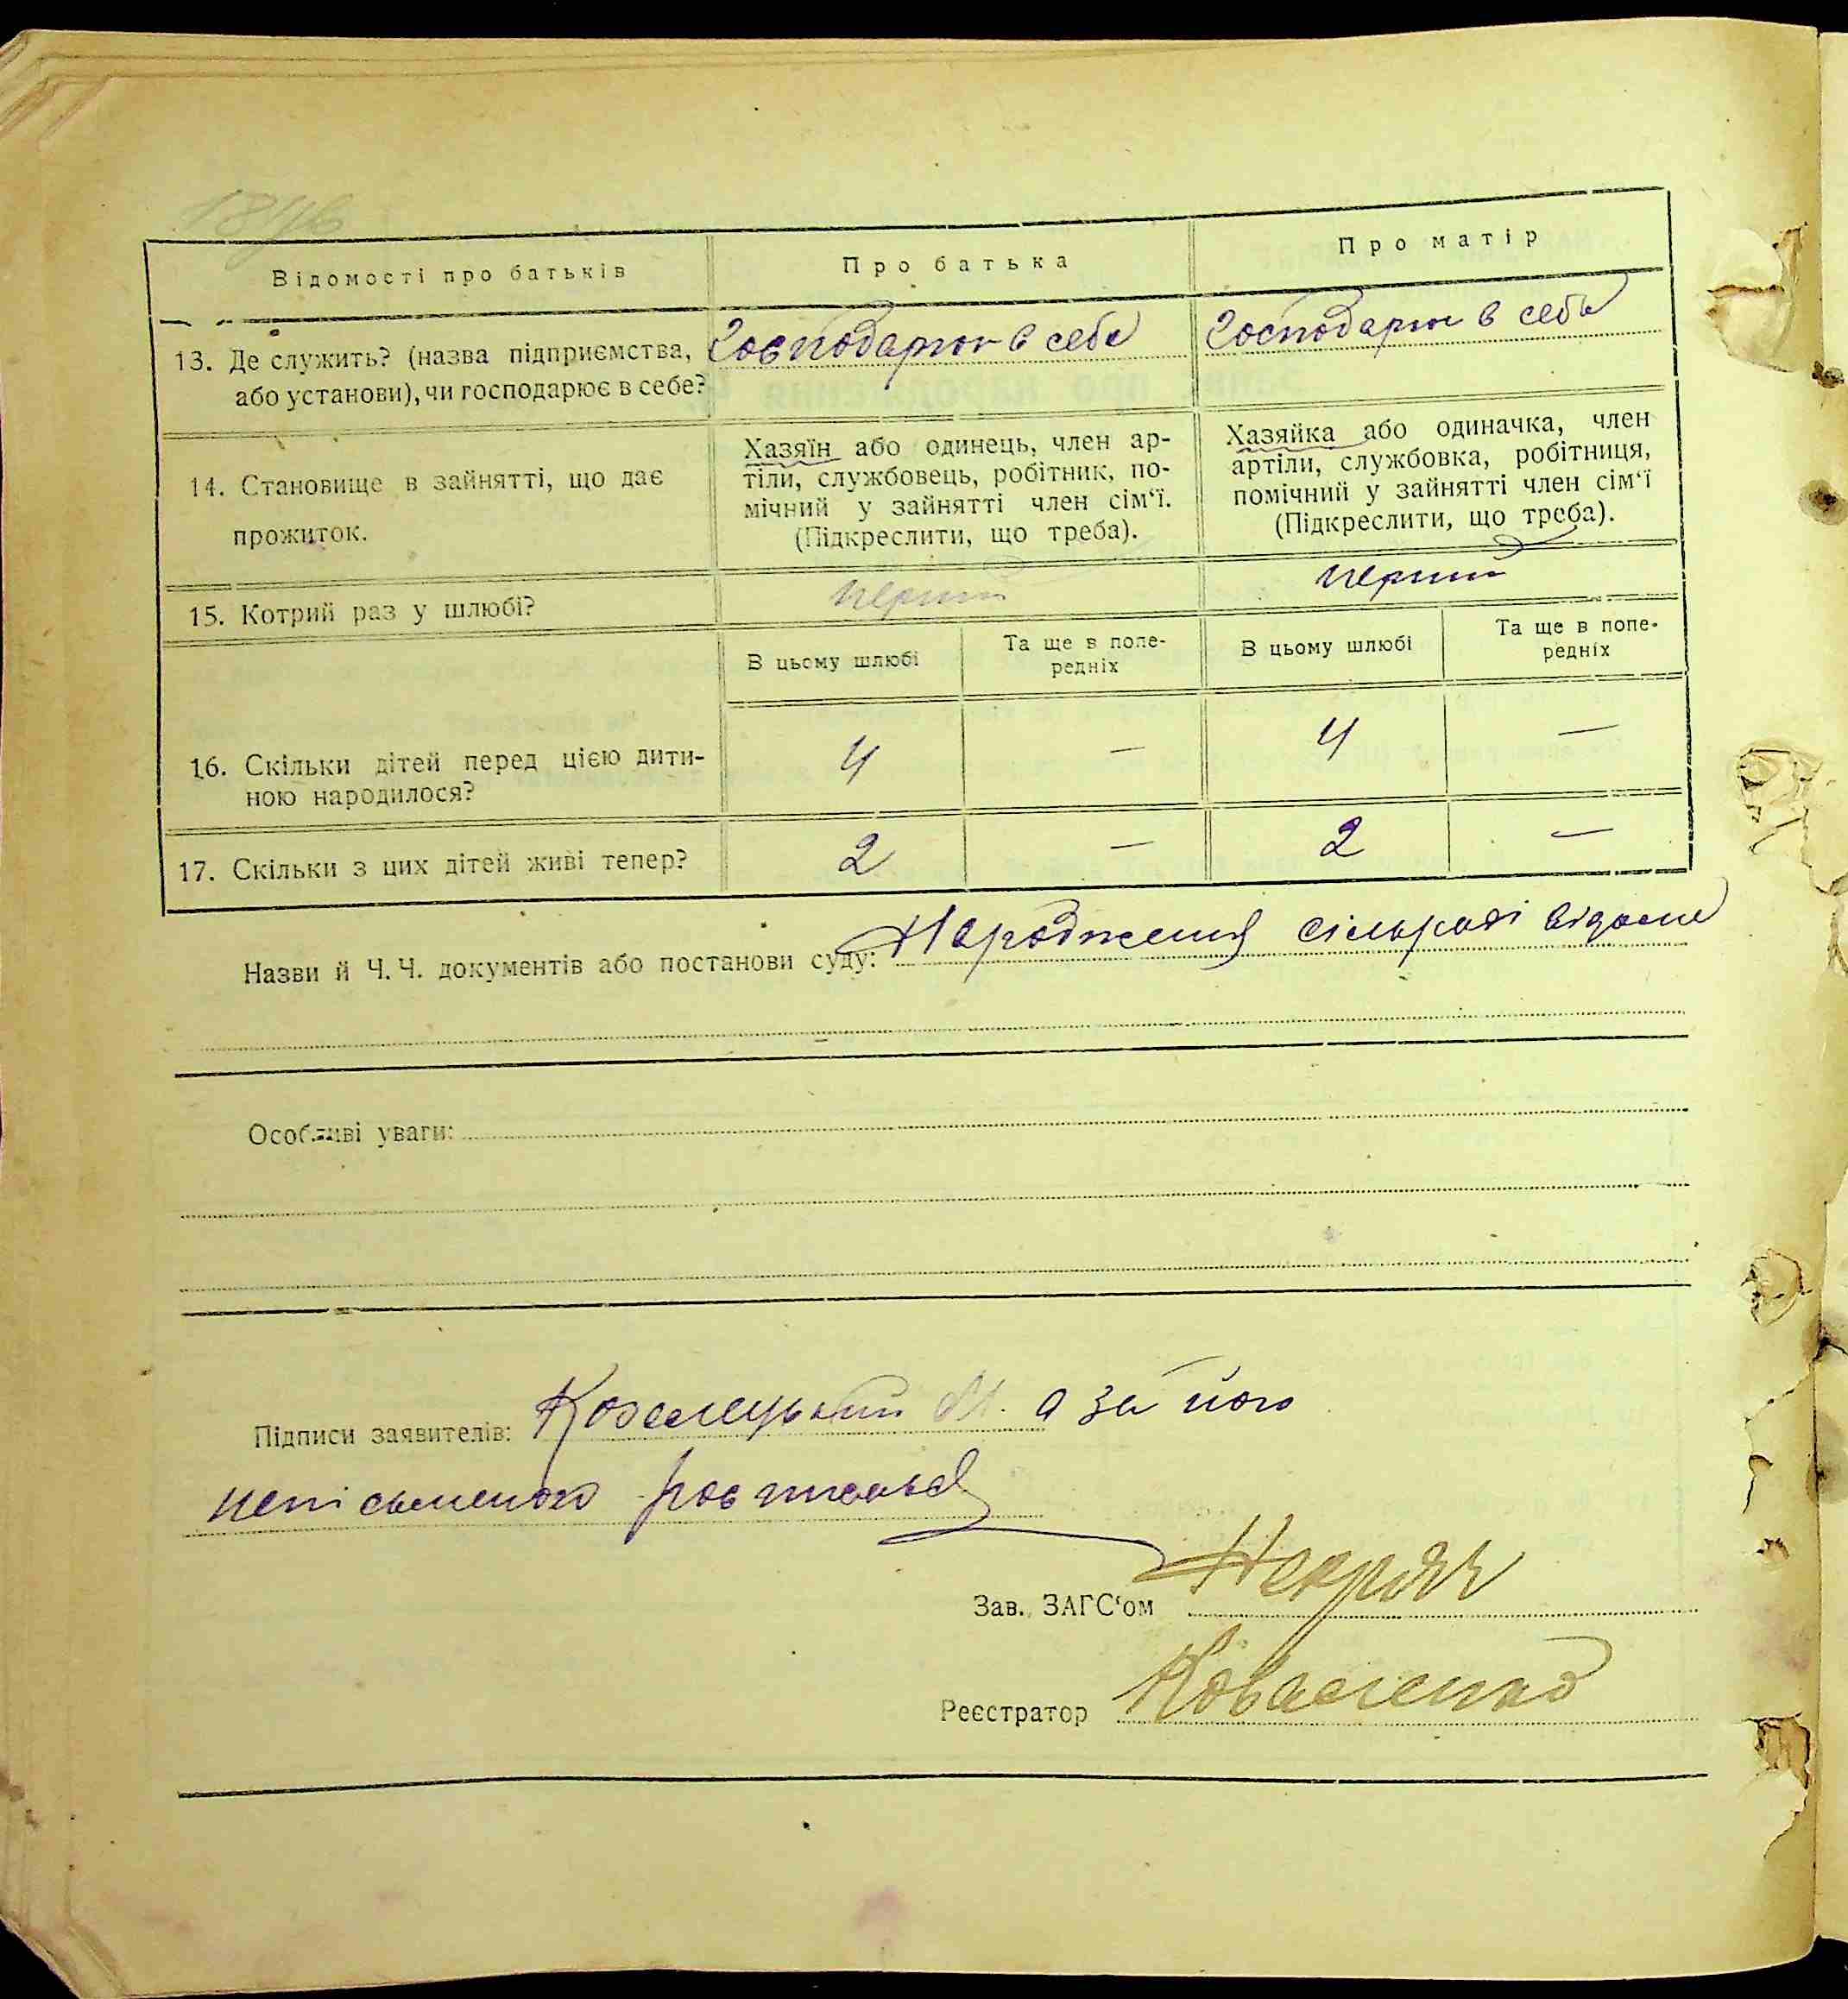 Відомості про батьків
Про батька
Про матір
13. Де служить? (назва підприємства, або установи), чи господарює в себе?
Господарює в себе
Господарює в себе
14. Становище в зайнятті, що дає прожиток.
Хазяїн або одинець, член ар-
тіли, службовець, робітник, по-
мічний у зайнятті член сім‘ї.
(Підкреслити, що треба).
Хазяйка або одиначка, член
артіли, службовка, робітниця,
помічний у зайнятті член сім‘ї
(Підкреслити, що треба).
15. Котрий раз у шлюбі?
перший
перший
В цьому шлюбі
Та ще в попе-
редніх
В цьому шлюбі
Та ще в попе-
редніх
16. Скільки дітей перед цією дити-
ною народилося?
4
—
4
—
17. Скільки з цих дітей живі тепер?
2
—
2
—
Назви й Ч. Ч. документів або постанови суду: Народження сільраді відоме
Особливі уваги:
Підписи заявителів: а за його
неписьменого
Зав. ЗАГС‘ом
Реєстратор Коваленко